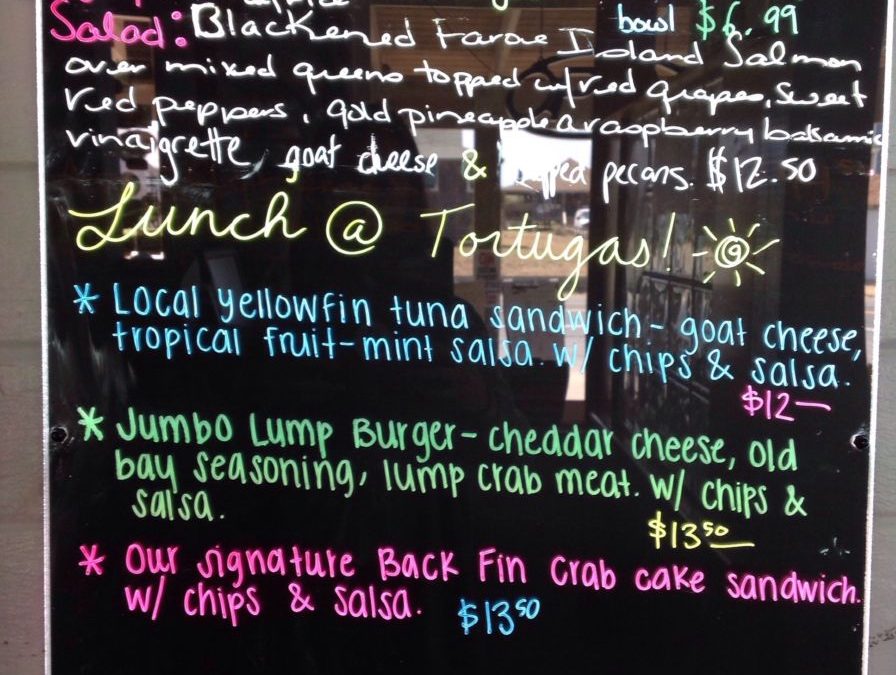 bowl $6.99
Salad: Blackened Faroe Island Salmon
over mixed greens topped w/red grapes, sweet
red peppers, gold pineapple a raspberry balsamic
vinaigrette, goat cheese & pecans. $12.50
Lunch @ Tortugas!
* Local yellowfin tuna sandwich - goat cheese,
tropical fruit-mint salsa. w/ chips & salsa.
$12—
* Jumbo Lump Burger - cheddar cheese, old
bay seasoning, lump crab meat. w/ chips &
salsa.
$13.50
* Our signature Back Fin Crab cake sandwich.
w/ chips & salsa. $13.50